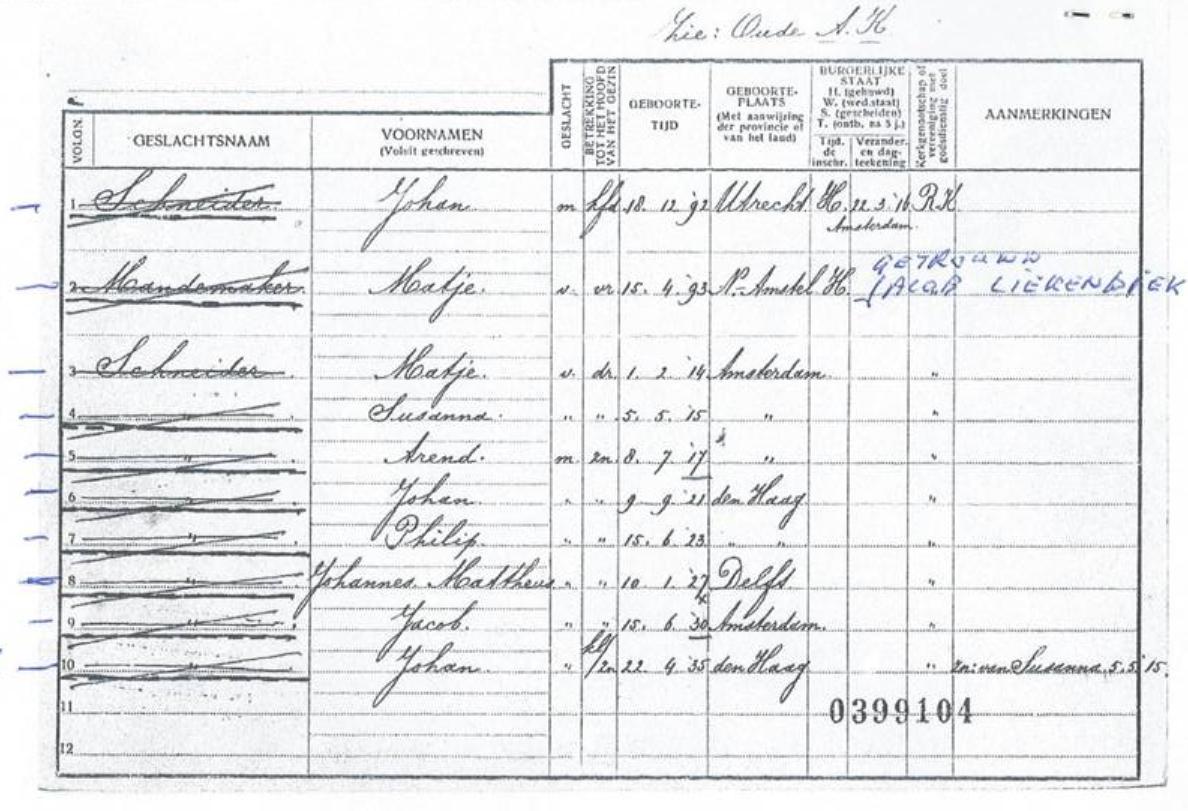 Zie: Oude A.K.
VOLGN. GESLACHTSNAAM VOORNAMEN (Voluit geschreven) GESLACHT BETREKKING TOT HET HOOFD VAN HET GEZIN GEBOORTE-TIJD GEBOORTE-PLAATS (Met aanwijzing der provincie of van het land) BURGERLIJKE STAAT H. (gehuwd) W. (wed.staat) S. (gescheiden) T. (ontb. na 5 j.) Tijd. de inschr. Verander. en dag-teekening Kerkgenootschap of vereeniging met godsdienstig doel AANMERKINGEN
1 Schneider Johan m hfd 18. 12 '92 Utrecht H. 22 3 '16 R.K.
Amsterdam.
GETROUWD
2 Mandemaker Matje. v. vr 15. 4. 93 N.-Amstel H. JACOB LIEKENDIEK
3 Schneider. Matje. v. dr. 1. 2. '14 Amsterdam. "
4 Susanna. " " 5. 5. '15 " "
5 " Arend. m. zn. 8. 7. '17 " "
6 Johan. " " 9 9. '21 den Haag "
7 " Philip. " " 15. 6. 23 " " "
8 " Johannes Mattheus " " 10 1. '27 Delft "
9 " Jacob. " " 15. 6. 30 Amsterdam. "
10 " Johan. " kl/zn 22 4. 35 den Haag " zn: van Susanna, 5.5.'15.
11 0399104
12